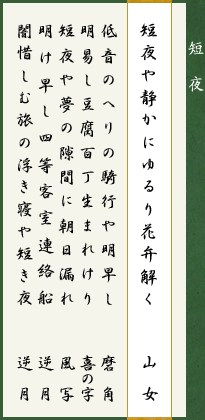 短夜
短夜や静かにゆるり花弁解く 山女
低音のへりの騎行や明早し 磨角
明易し豆腐百丁生まれけり 喜の字
短夜や夢の隙間に朝日漏れ 風写
明け早し四等客室連絡船 逆月
闇惜しむ旅の浮き寝や短き夜 逆月